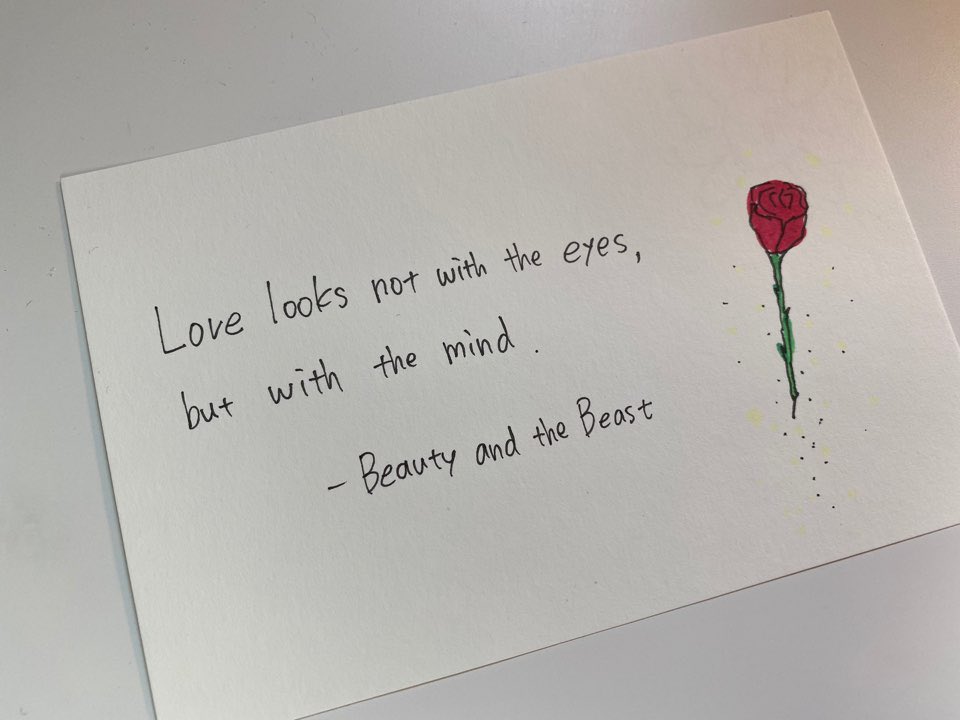 Love looks not with the eyes,
but with the mind.
- Beauty and the Beast